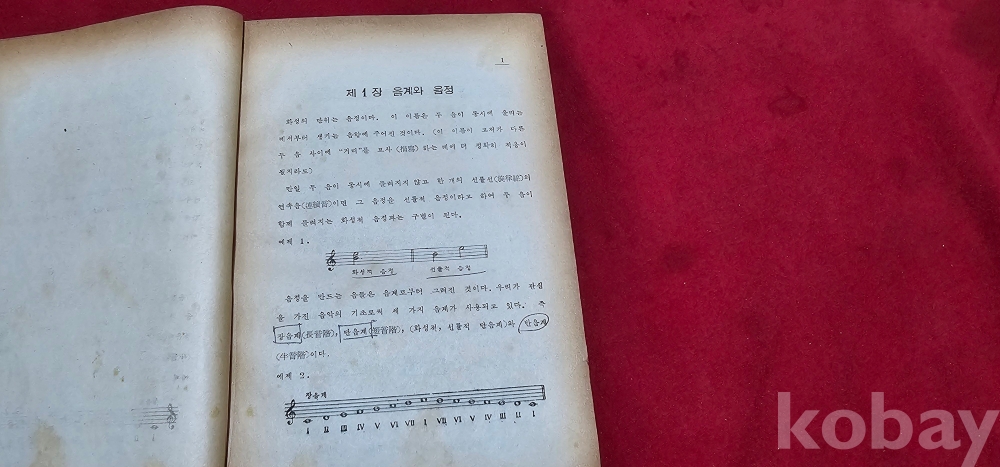 1
제 1 장 음계와 음정
화성의 단위는 음정이다. 이 이름은 두 음이 동시에 울리는
데서부터 생기는 음향에 주어진 것이다. (이 이름이 고저가 다른
두 음 사이에 "거리"를 묘사 (描寫) 하는데에 더 정확히 적용이
될지라도)
만일 두 음이 동시에 들려지지 않고 한 개의 선률선(旋律線)의
연속음(連續音)이면 그 음정을 선률적 음정이라고 하여 두 음이
함께 들려지는 화성적 음정과는 구별이 된다.
예제 1.
화성적 음정 선률적 음정
음정을 만드는 음들은 음계로부터 그려진 것이다. 우리가 관심
을 가진 음악의 기초로써 세 가지 음계가 사용되고 있다. 즉
장음계(長音階), 단음계(短音階), (화성적, 선률적 단음계)와 반음계
(半音階)이다.
예제 2.
장음계
I II III IV V VI VII I VII VI V IV III II I
kobay